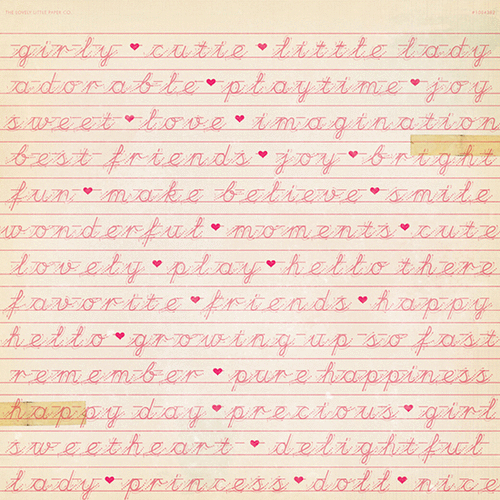 THE LOVELY LITTLE PAPER CO.
girly ♥ cutie ♥ little lady
adorable ♥ playtime ♥ joy
sweet ♥ love ♥ imagination
best friends ♥ joy ♥ bright
fun ♥ make believe ♥ smile
wonderful ♥ moments ♥ cute
lovely ♥ play ♥ hello there
favorite ♥ friends ♥ happy
hello ♥ growing up so fast
remember ♥ pure happiness
happy day ♥ precious ♥ girl
sweetheart ♥ delightful
lady ♥ princess ♥ doll ♥ nice